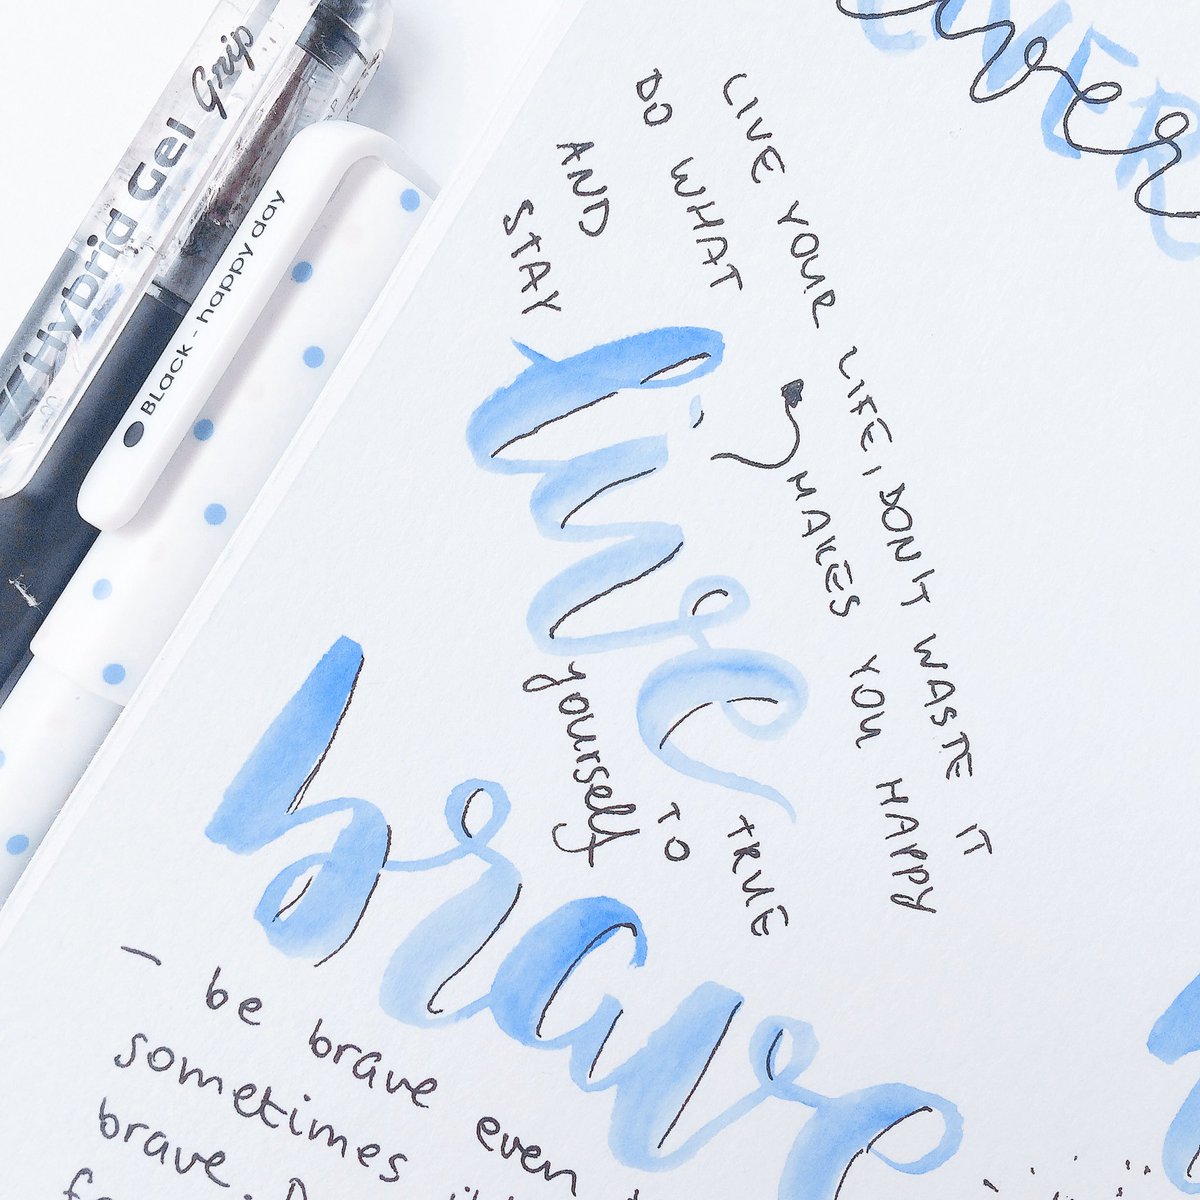 Hybrid Gel Grip
BLACK - happy day
LIVE YOUR LIFE, DON'T WASTE IT
DO WHAT MAKES YOU HAPPY
AND
STAY
live
TRUE
TO
yourself
brave
— be brave even
sometimes
brave.